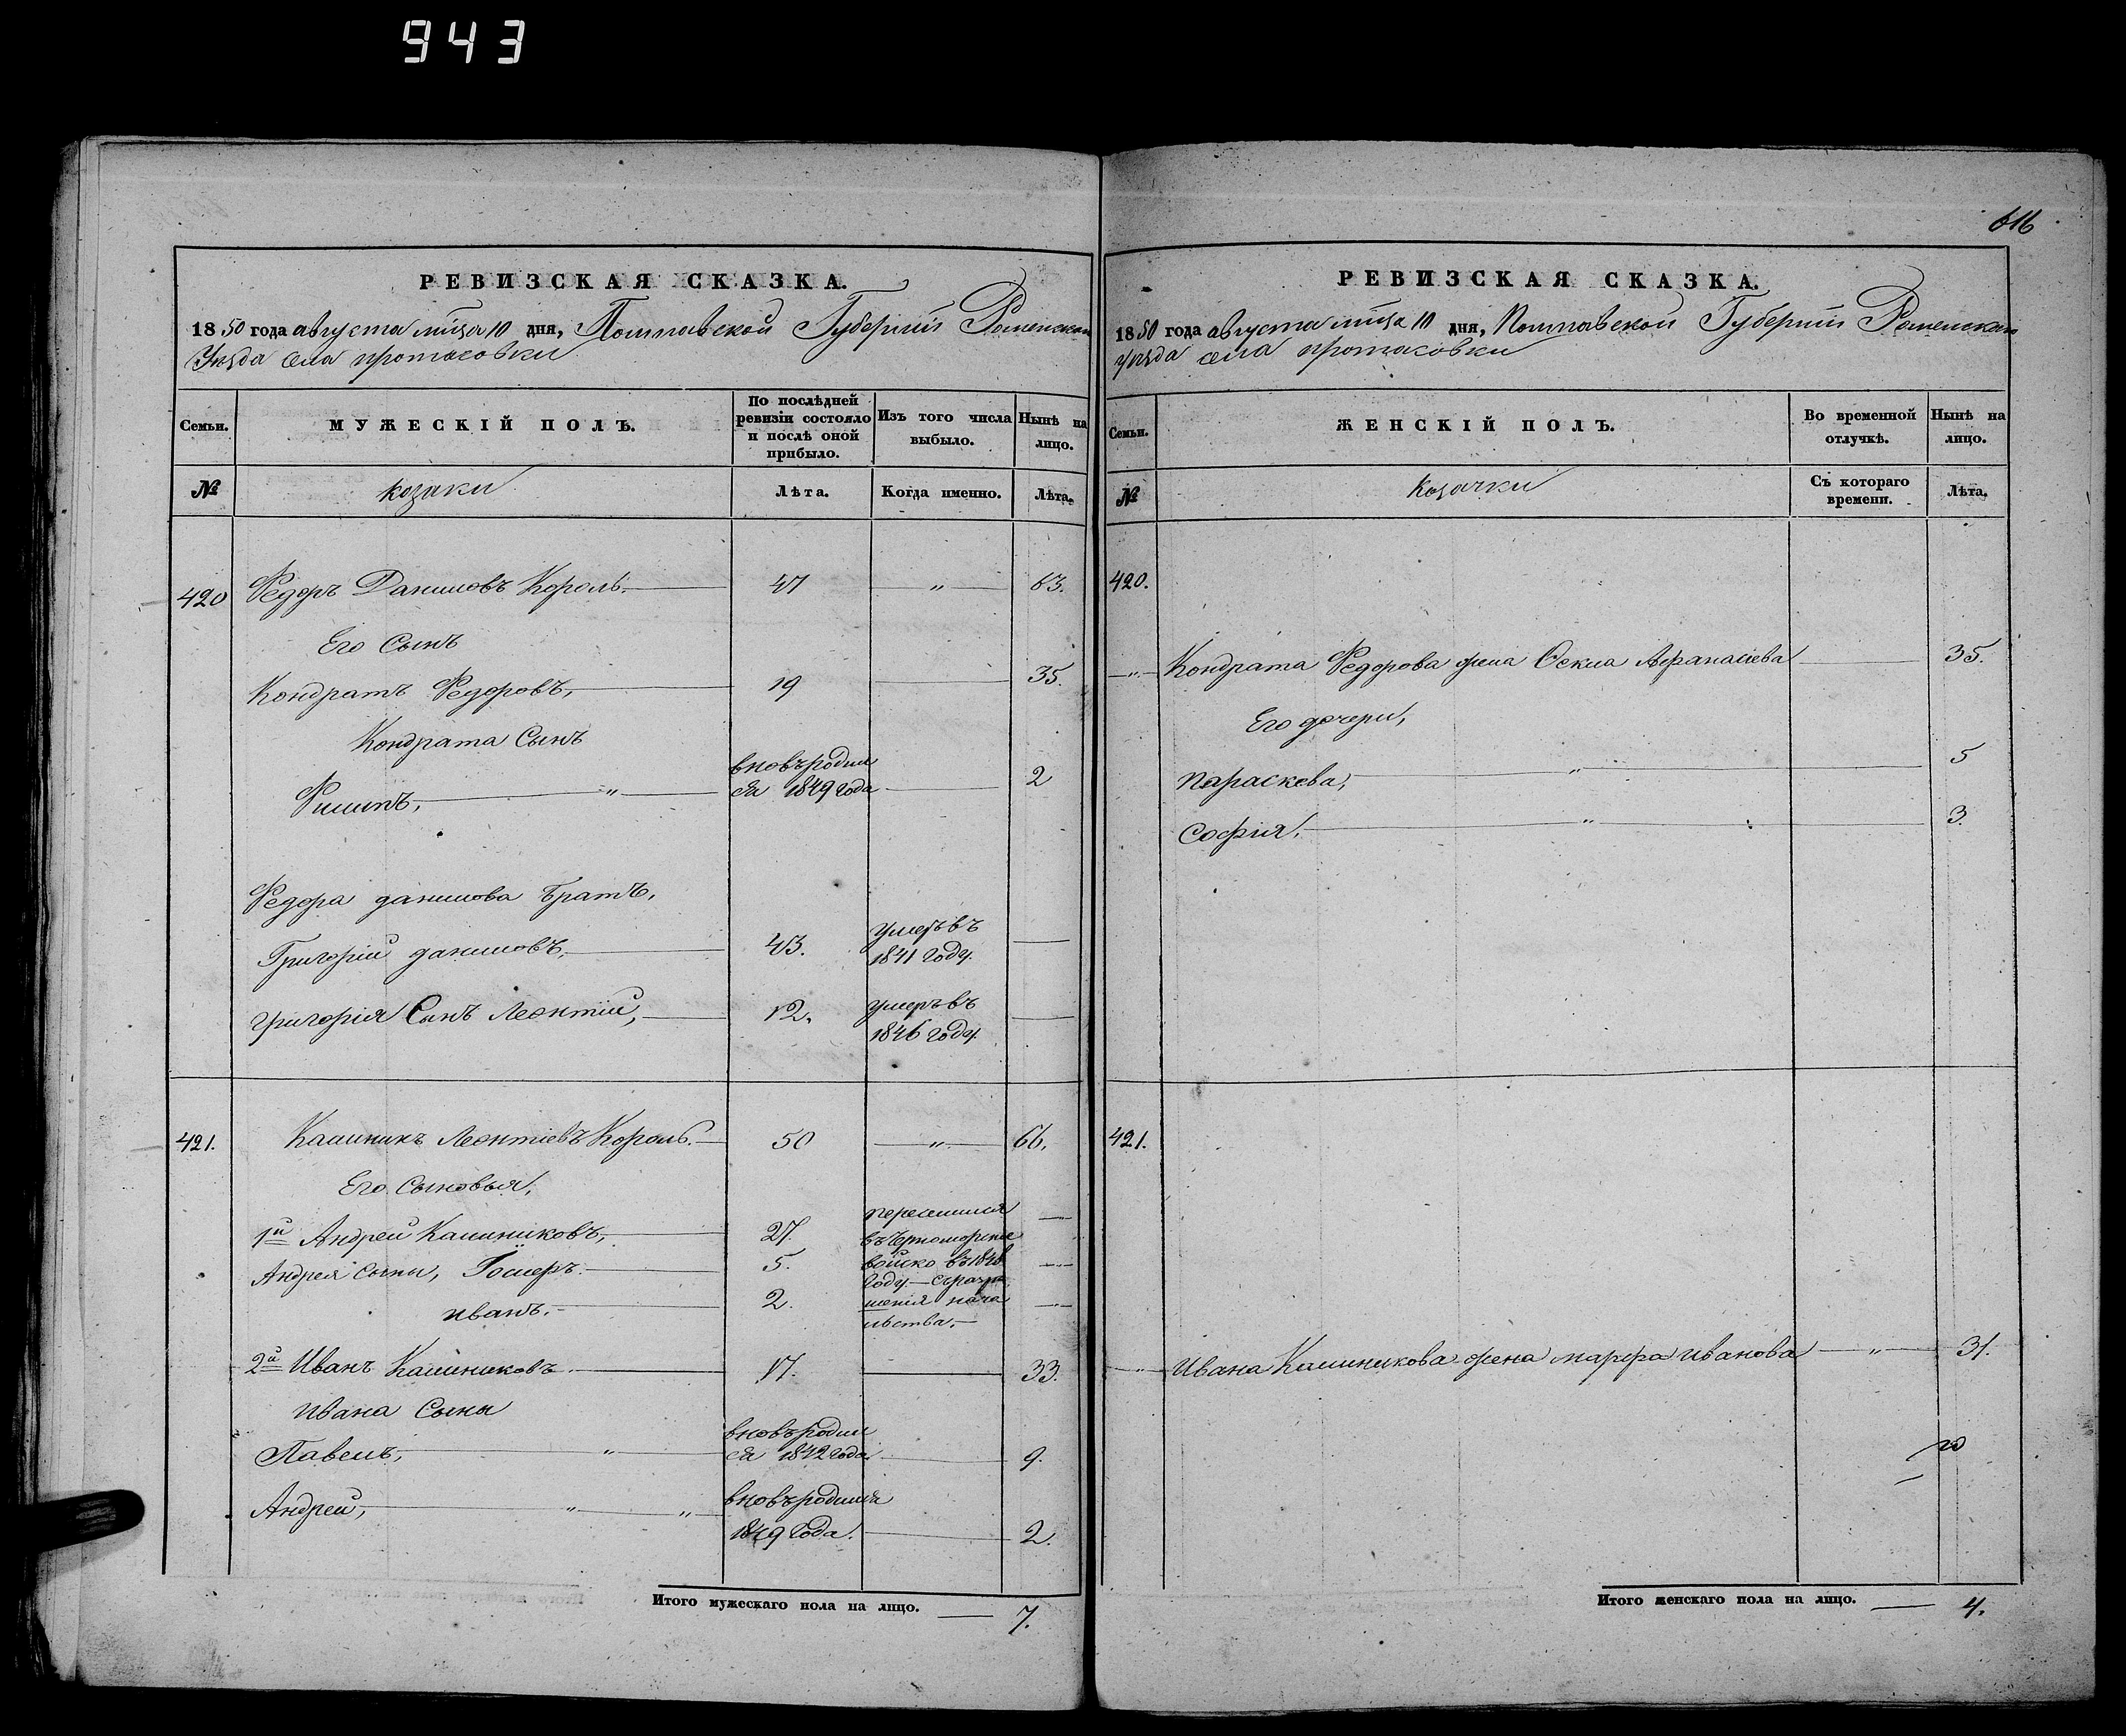 943
616
РЕВИЗСКАЯ СКАЗКА.
1850 года августа мѣца 10 дня, Полтавской Губерніи Роменскаго
Уѣзда села протасовки
Семьи.
МУЖЕСКІЙ ПОЛЪ.
По послѣдней ревизіи состояло и послѣ оной прибыло.
Изъ того числа выбыло.
Нынѣ на лицо.
№
козаки
Лѣта.
Когда именно.
Лѣта.
420 Федоръ Даниловъ Король. 47 " 63.
Его Сынъ
Кондратъ Федоровъ, 19 35.
Кондрата Сынъ
Филипъ, " вновьродил
ся 1849 года 2
Федора данилова братъ,
Григорій даниловъ, 43. умеръ въ
1841 году.
григорія Сынъ Леонтій, 12. умеръ въ
1846 году.
421. Калиникъ Леонтіевъ Король. 50 " 66.
Его Сыновья,
1й Андрей Калиниковъ, 27. переселился
въ Черноморское
Андрея сыны, Гомеръ. 5. войско въ 1848
году. — съразрѣ
иванъ. 2. шенія нача
льства. —
2й Иванъ Калиниковъ 17. 33.
ивана Сыны
Павелъ, " вновьродил
ся 1842 года. 9.
Андрей, " " вновьродился
1849 года. 2.
Итого мужескаго пола на лицо. 7.
РЕВИЗСКАЯ СКАЗКА.
1850 года августа мѣца 10 дня, Полтавской Губерніи Роменскаго
уѣзда села протасовки
Семьи.
ЖЕНСКІЙ ПОЛЪ.
Во временной отлучкѣ.
Нынѣ на лицо.
№
Козачки
Съ котораго времени.
Лѣта.
420.
" Кондрата Федорова жена Оскла Афанасіева 35.
Его дочери,
параскева, " 5
Софія. " 3.
421.
" Ивана Калиникова жена марфа иванова " 31.
Итого женскаго пола на лицо. 4.